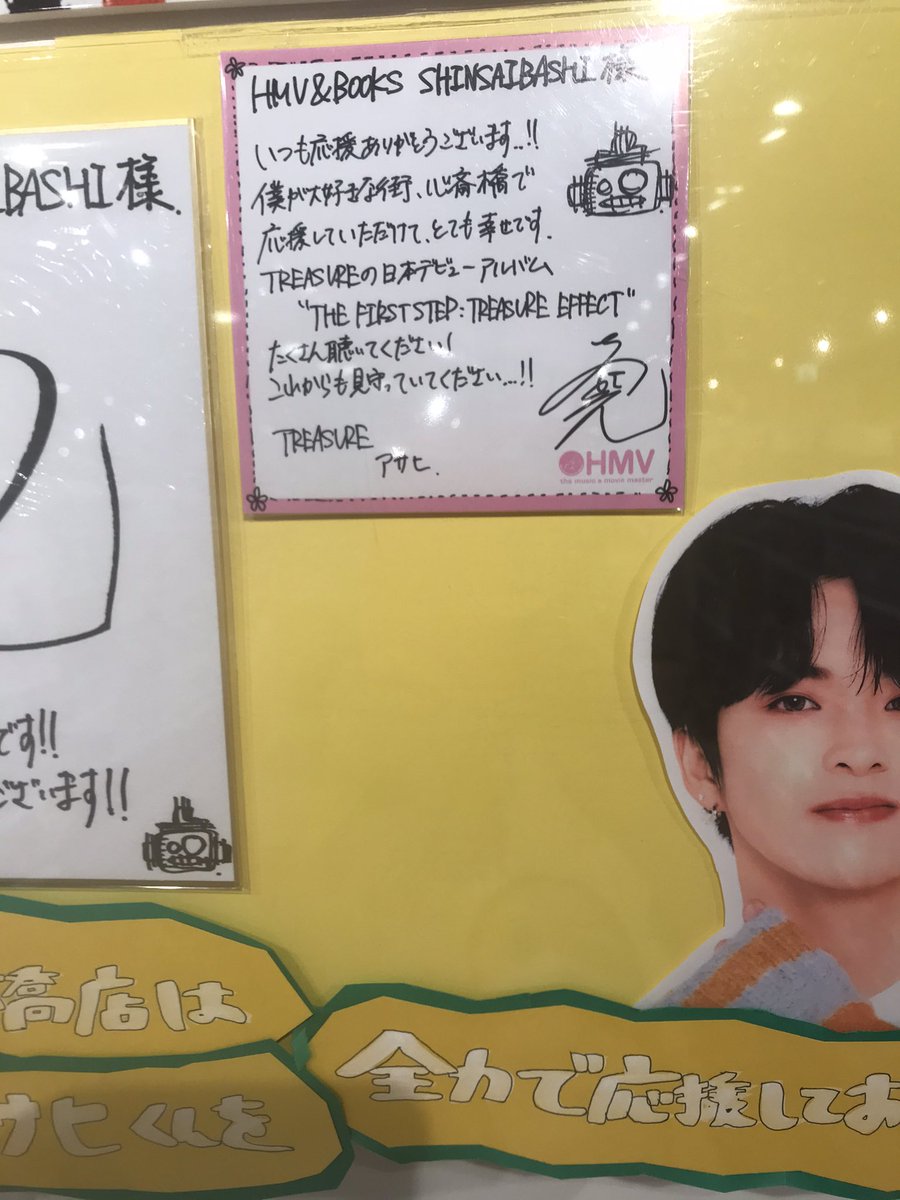 HMV&BOOKS SHINSAIBASHI様
いつも応援ありがとうございます..!!
僕が大好きな街、心斎橋で
応援していただけて、とても幸せです.
TREASUREの日本デビューアルバム
"THE FIRST STEP:TREASURE EFFECT"
たくさん聴いてください!
これからも見守っていてください...!!
TREASURE
アサヒ.
HMV
the music & movie master
IBASHI様.
です!!
ございます!!
橋店は
サヒくんを
全力で応援してお